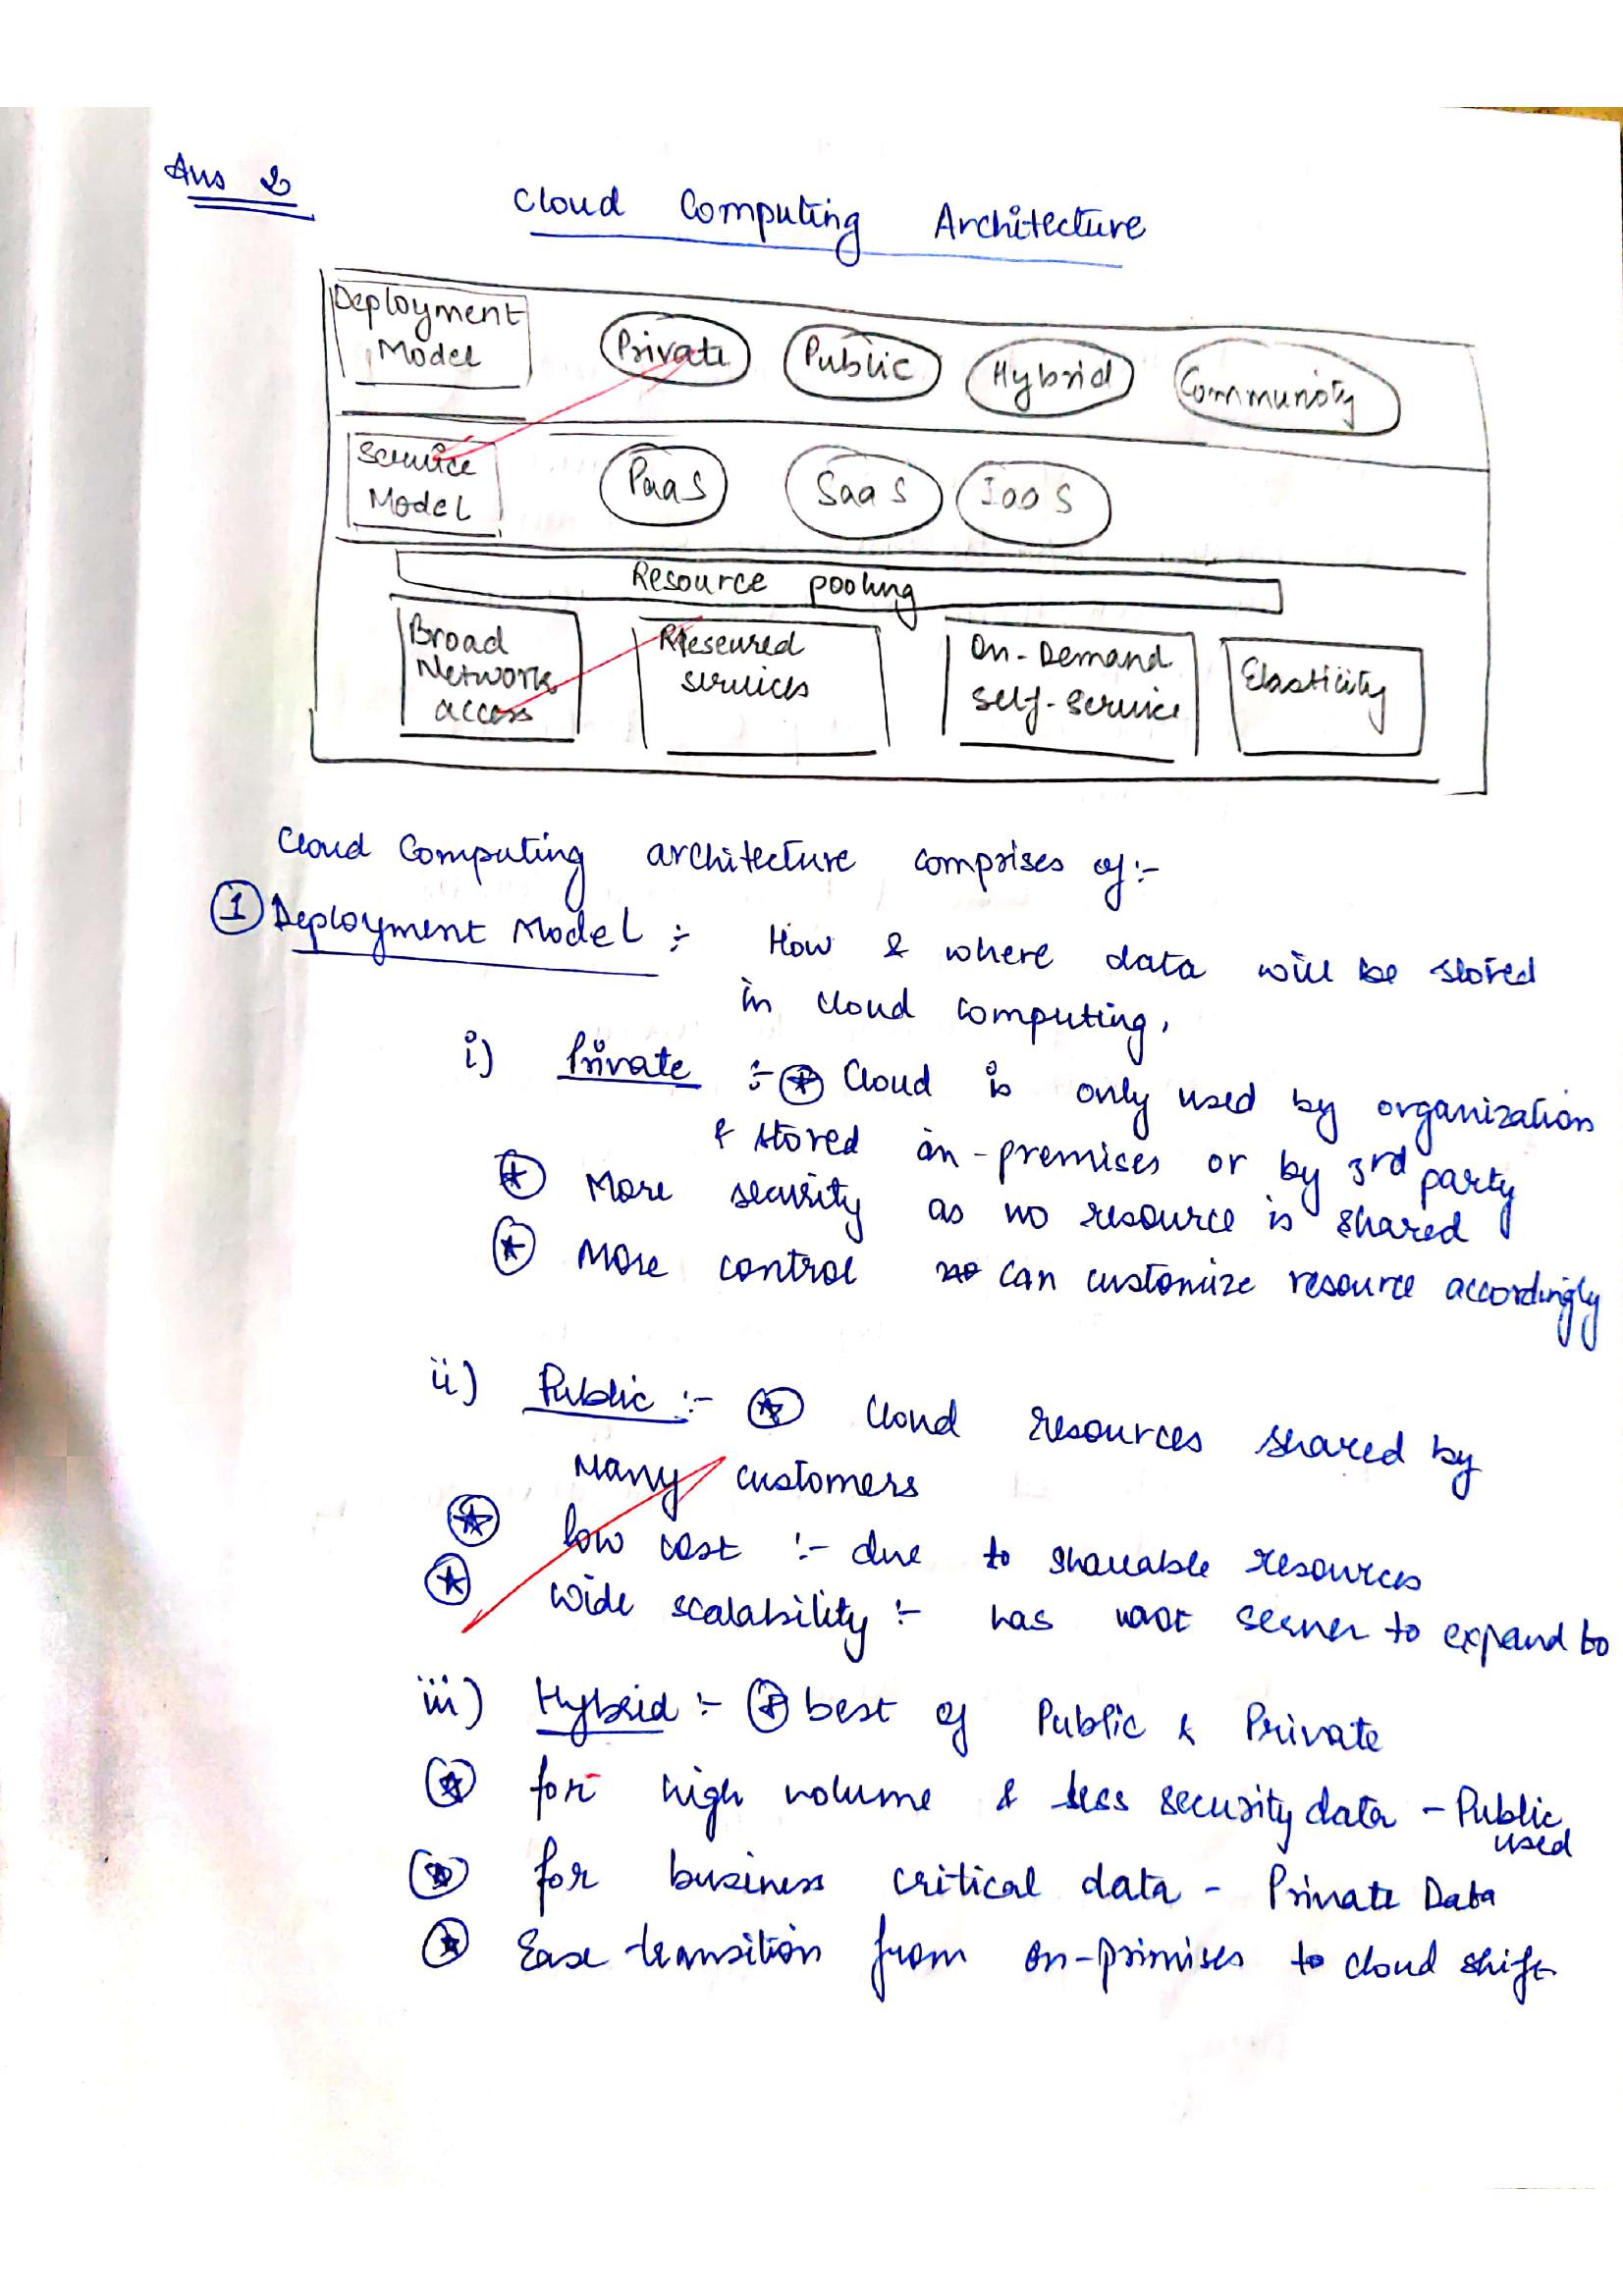 Ans 2
Cloud Computing Architecture
Deployment Model Private Public Hybrid Community
Service Model PaaS SaaS IaaS
Resource pooling
Broad Network access services On-Demand Self-Service Elasticity
Cloud Computing architecture comprises of :-
① Deployment Model :- How & where data will be stored
in cloud computing.
i) Private :- ⊛ Cloud is only used by organization
& stored on-premises or by 3rd party
⊛ More security as no resource is shared
⊛ More control can customize resource accordingly
ii) Public :- ⊛ Cloud resources shared by
Many customers
⊛ low cost :- due to shareable resources
⊛ Wide scalability :- has server to expand to
iii) Hybrid :- ⊛ best of Public & Private
⊛ for high volume & less security data - Public
used
⊛ for business critical data - Private Data
⊛ Ease transition from on-primises to cloud shift